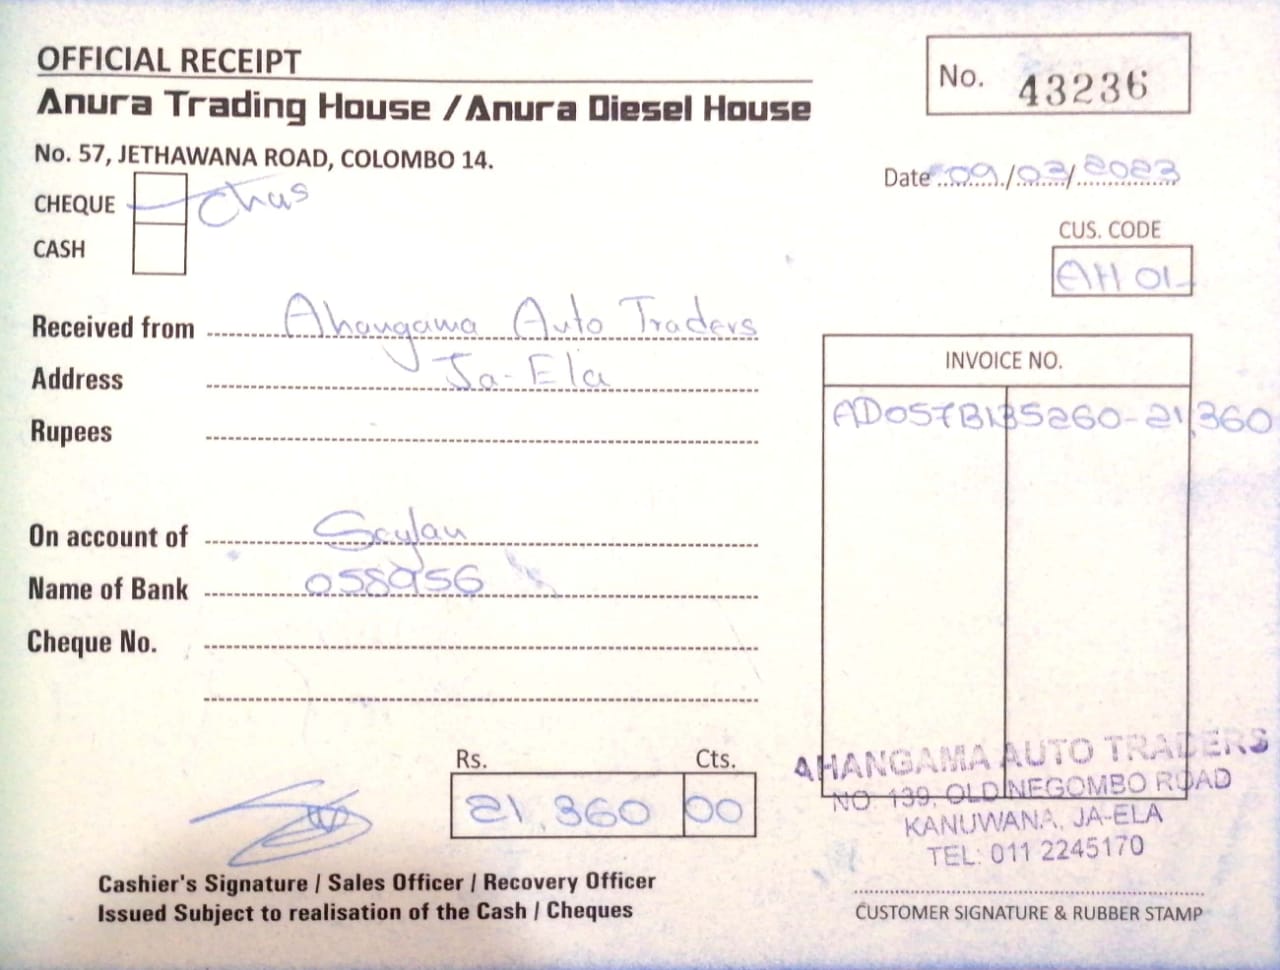 OFFICIAL RECEIPT
Anura Trading House / Anura Diesel House
No. 57, JETHAWANA ROAD, COLOMBO 14.
No. 43236
Date 09/03/2023
CHEQUE Chus
CASH
CUS. CODE
AH 01
Received from Ahangama Auto Traders
Address Ja-Ela
Rupees
INVOICE NO.
AD057B135260-21,360
On account of Seylan
Name of Bank 058956
Cheque No.
Rs. Cts.
21,360 00
AHANGAMA AUTO TRADERS
NO 139, OLD NEGOMBO ROAD
KANUWANA, JA-ELA
TEL: 011 2245170
Cashier's Signature / Sales Officer / Recovery Officer
Issued Subject to realisation of the Cash / Cheques
CUSTOMER SIGNATURE & RUBBER STAMP